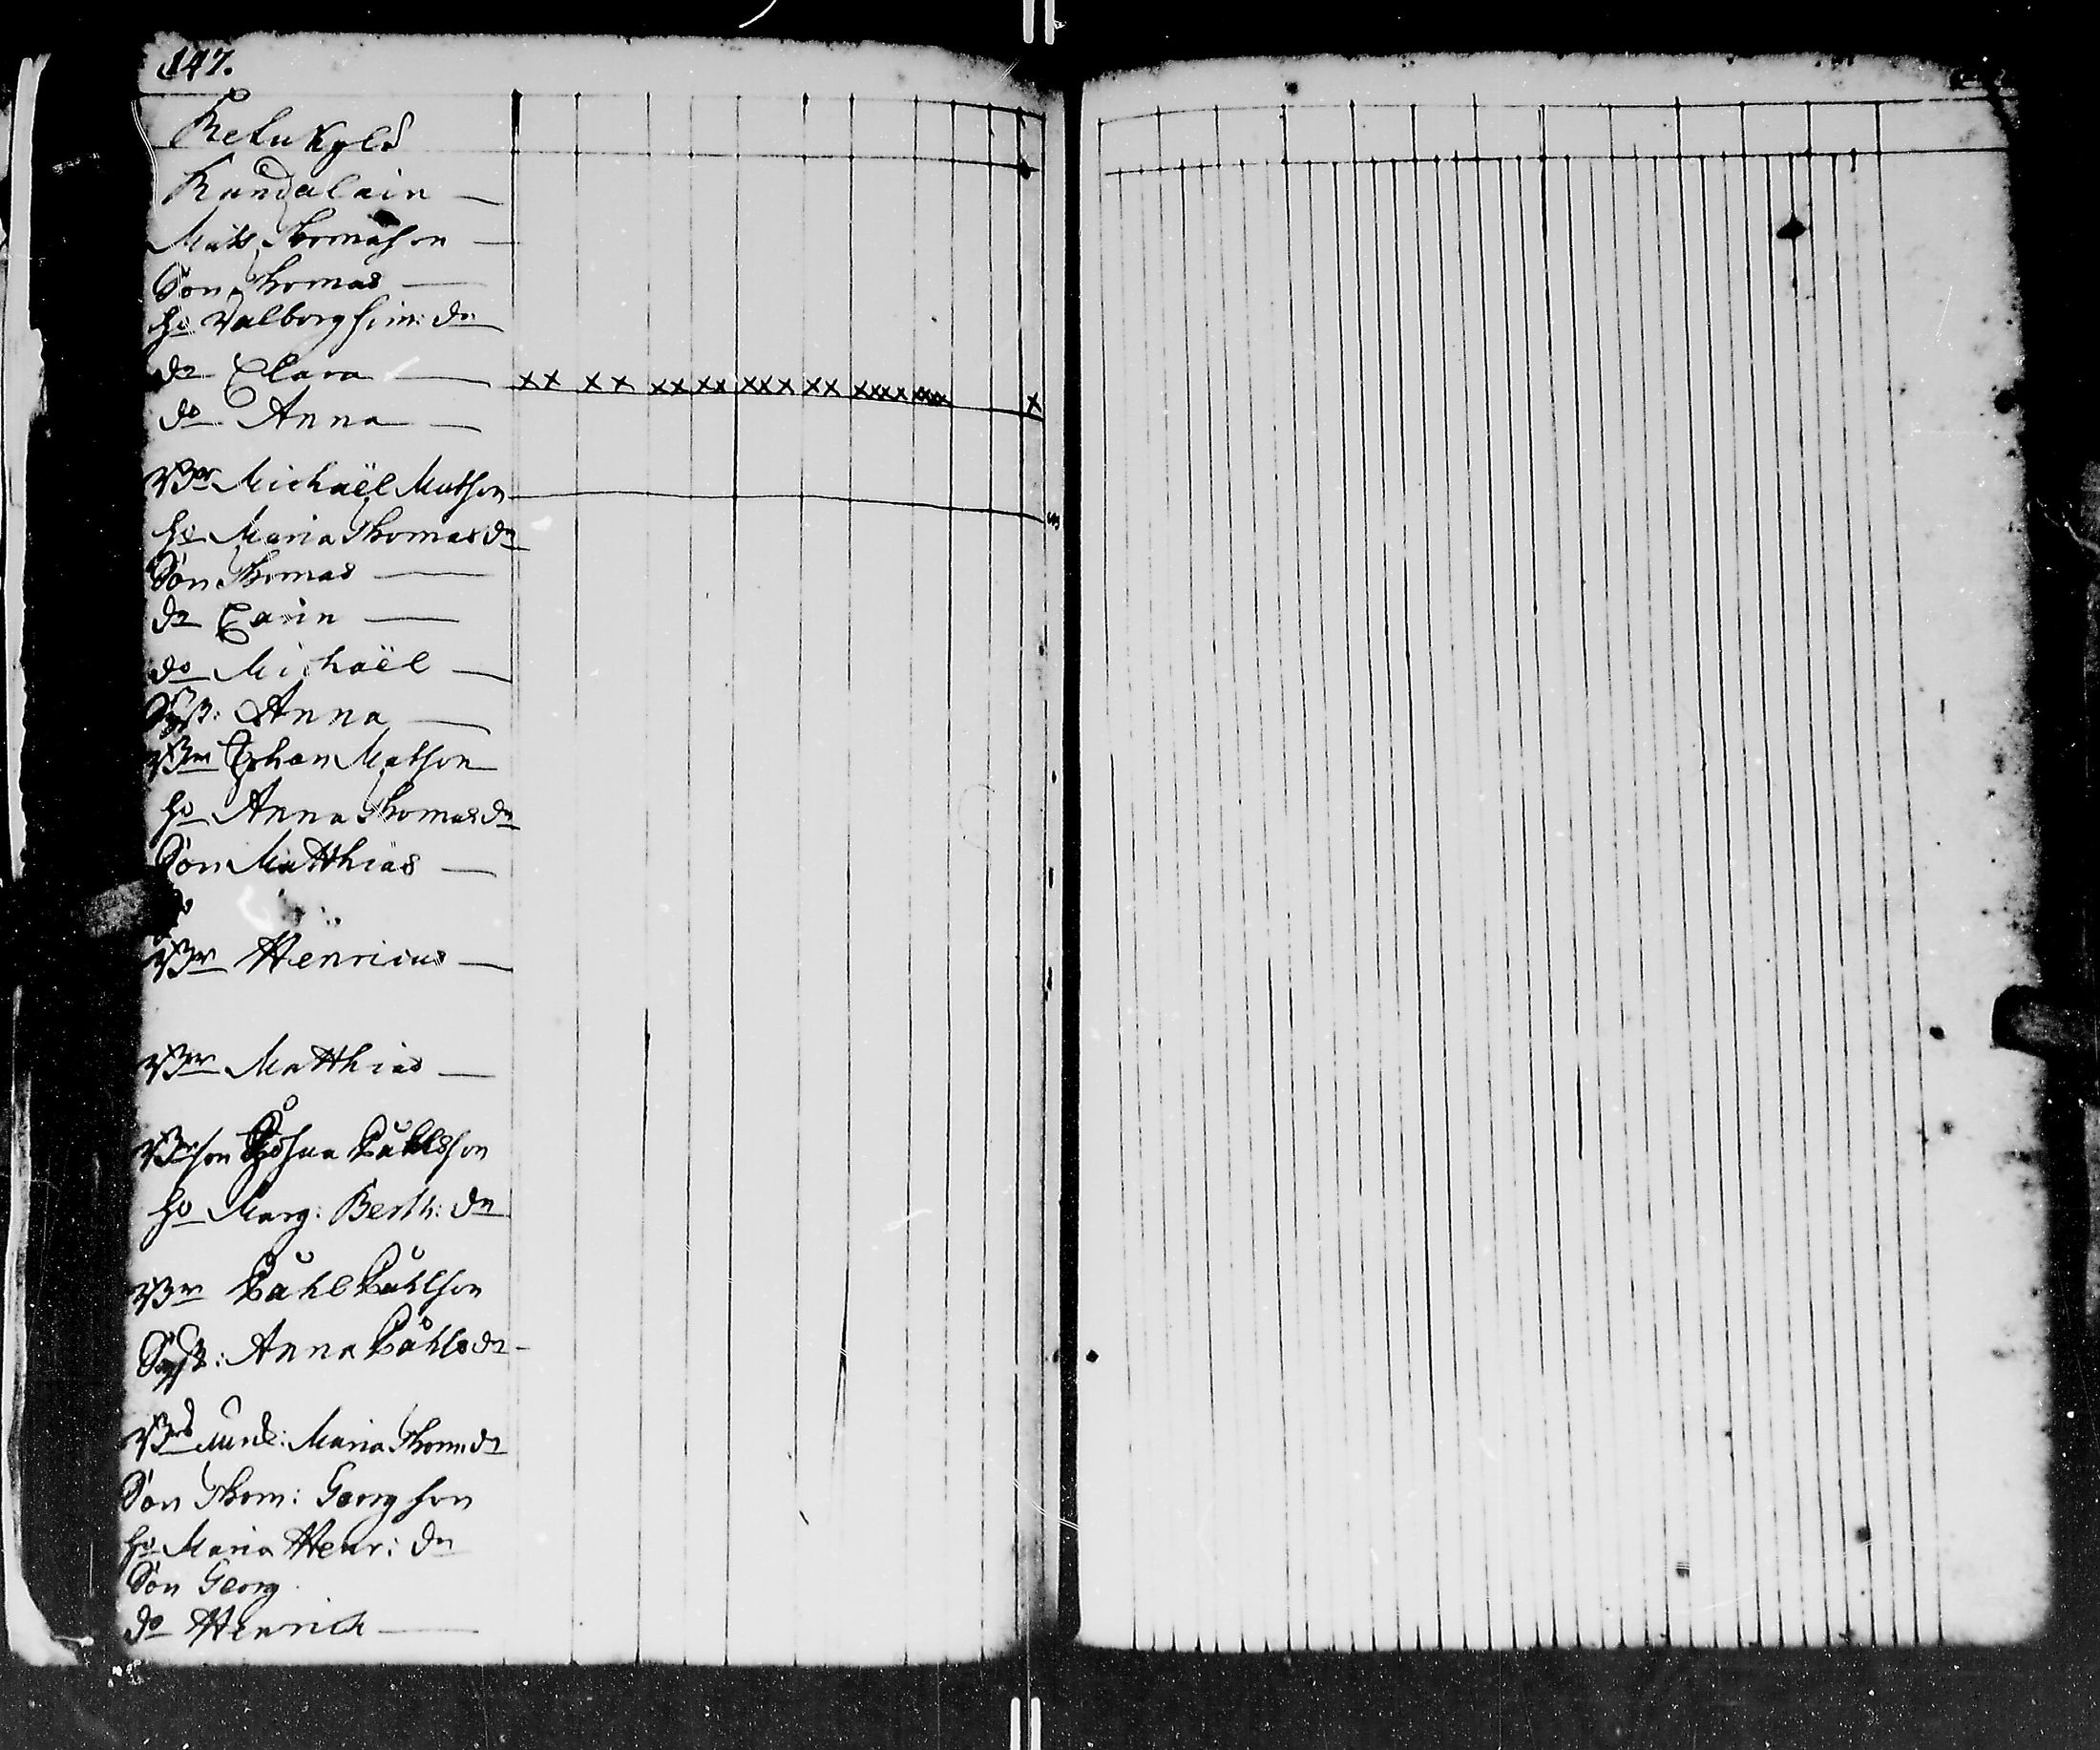 147.
Retukylä
Kandalain
Mats Thomason
Son Thomas
ho Valborg Sim: dr
dr Clara
do Anna
Br Michaël Matson
ho Maria Thomasdr
Son Thomas
dr Carin
do Michaël
Syst: Anna
Br Johan Matson
ho Anna Thomasdr
Son Matthias
Br Henricus
Br Matthias
Brson Påhlsson
ho Marg: Berth: dr
Br Påhl Påhlson
Syst: Anna Påhlsdr
Maria Thom: dr
Son Thom: Georgson
ho Maria Henr: dr
Son Georg
do Henrich